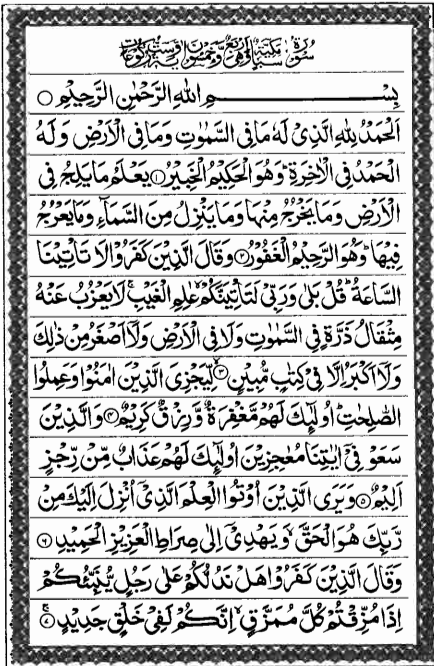 سورة سبا مكية وهي اربع وخمسون اية وست ركوعات
بِسْمِ اللهِ الرَّحْمٰنِ الرَّحِيْمِ ○
اَلْحَمْدُ لِلّٰهِ الَّذِىْ لَهٗ مَا فِى السَّمٰوٰتِ وَمَا فِى الْاَرْضِ وَلَهُ
الْحَمْدُ فِى الْاٰخِرَةِ ؕ وَهُوَ الْحَكِيْمُ الْخَبِيْرُ ۝۱ يَعْلَمُ مَا يَلِجُ فِى
الْاَرْضِ وَمَا يَخْرُجُ مِنْهَا وَمَا يَنْزِلُ مِنَ السَّمَآءِ وَمَا يَعْرُجُ
فِيْهَا ؕ وَهُوَ الرَّحِيْمُ الْغَفُوْرُ ۝۲ وَقَالَ الَّذِيْنَ كَفَرُوْا لَا تَاْتِيْنَا
السَّاعَةُ ؕ قُلْ بَلٰى وَرَبِّىْ لَتَاْتِيَنَّكُمْ ۙ عٰلِمِ الْغَيْبِ ۚ لَا يَعْزُبُ عَنْهُ
مِثْقَالُ ذَرَّةٍ فِى السَّمٰوٰتِ وَلَا فِى الْاَرْضِ وَلَاۤ اَصْغَرُ مِنْ ذٰلِكَ
وَلَاۤ اَكْبَرُ اِلَّا فِىْ كِتٰبٍ مُّبِيْنٍ ۝۳ لِّيَجْزِىَ الَّذِيْنَ اٰمَنُوْا وَعَمِلُوا
الصّٰلِحٰتِ ؕ اُولٰٓئِكَ لَهُمْ مَّغْفِرَةٌ وَّرِزْقٌ كَرِيْمٌ ۝۴ وَالَّذِيْنَ
سَعَوْ فِىْۤ اٰيٰتِنَا مُعٰجِزِيْنَ اُولٰٓئِكَ لَهُمْ عَذَابٌ مِّنْ رِّجْزٍ
اَلِيْمٌ ۝۵ وَيَرَى الَّذِيْنَ اُوْتُوا الْعِلْمَ الَّذِىْۤ اُنْزِلَ اِلَيْكَ مِنْ
رَّبِّكَ هُوَ الْحَقَّ ۙ وَيَهْدِىْۤ اِلٰى صِرَاطِ الْعَزِيْزِ الْحَمِيْدِ ۝۶
وَقَالَ الَّذِيْنَ كَفَرُوْا هَلْ نَدُلُّكُمْ عَلٰى رَجُلٍ يُّنَبِّئُكُمْ
اِذَا مُزِّقْتُمْ كُلَّ مُمَزَّقٍ ۙ اِنَّكُمْ لَفِىْ خَلْقٍ جَدِيْدٍ ۝۷